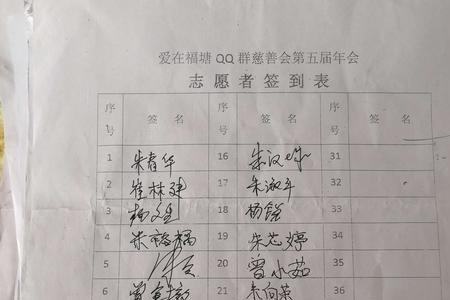 爱在福塘QQ群慈善会第五届年会
志愿者签到表
序号 签名 序号 签名 序号 签名
1 朱春华 16 朱汉 31
2 崔林建 17 朱淑平 32
3 杨 18 杨 33
4 朱 19 朱芯婷 34
5 20 曾小茹 35
6 曾 21 朱向荣 36